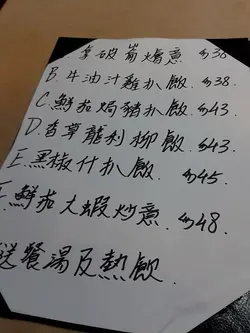 拿破崙焗意 $38
B. 牛油汁雞扒飯. $38.
C. 鮮茄焗豬扒飯. $43
D. 香草龍利柳飯. $43.
E. 黑椒什扒飯. $45
F. 鮮茄大蝦炒意. $48.
送餐湯及熱飲.